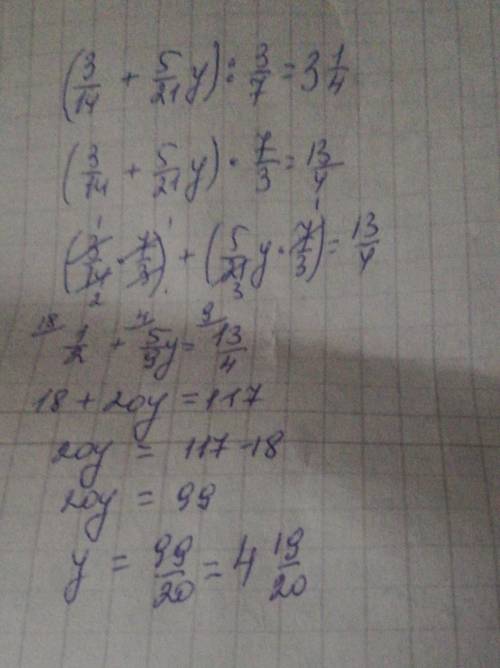 (3/14 + 5/21 y) : 3/7 = 3 1/4
(3/14 + 5/21 y) · 7/3 = 13/4
(3/14 · 7/3) + (5/21 y · 7/3) = 13/4
1 1 1 2 3
18 4 9
1/2 + 5/9 y = 13/4
18 + 20y = 117
20y = 117 - 18
20y = 99
y = 99/20 = 4 19/20